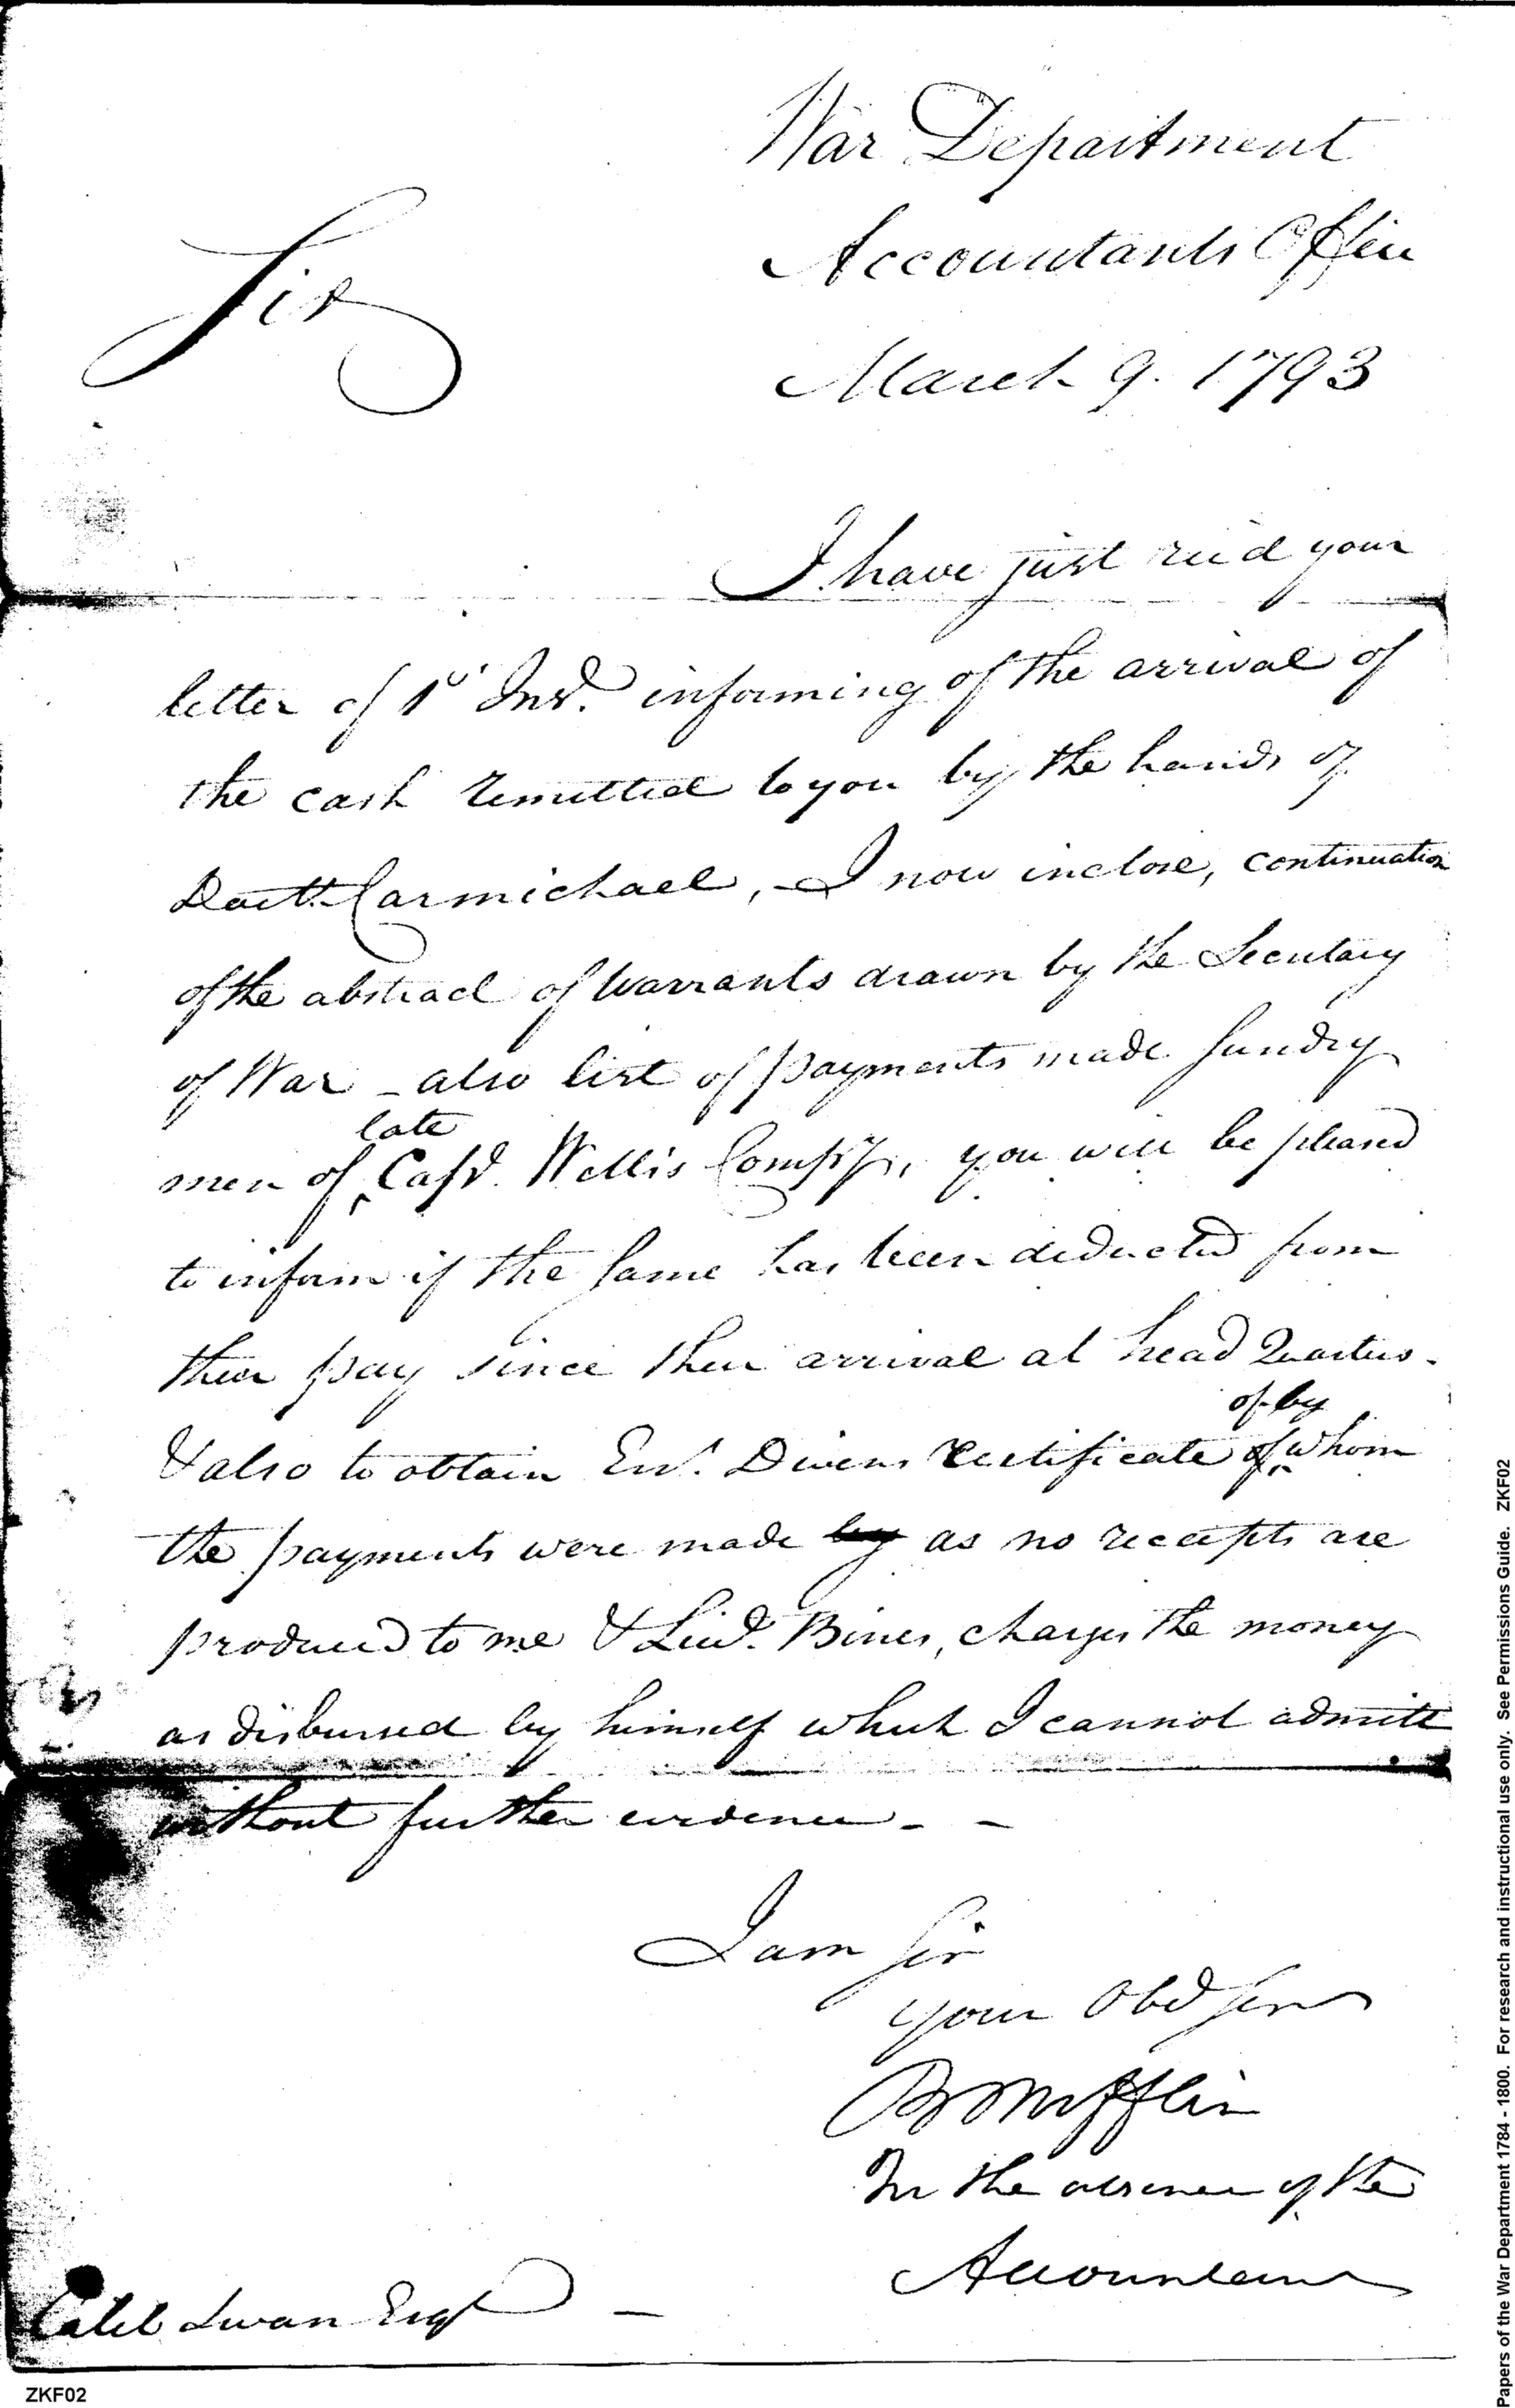 War Department
Accountants Office
March 9. 1793
Sir
I have just rec'd your
letter of 1st Inst. informing of the arrival of
the cash remitted to you by the hands of
Doctr. Carmichael, - I now inclose, continuation
of the abstract of Warrants drawn by the Secretary
of War - also list of payments made sundry
late
men of ^ Capt. Wellis Compy, you will be pleased
to inform if the same has been deducted from
their pay since their arrival at head Quarters -
of by
& also to obtain Ens. Divens Certificate of ^ whom
the payments were made by as no receipts are
produced to me & Lieut. Bines, charges the money
as disbursed by himself which I cannot admitt
without further evidence - -
I am Sir
your Obd Serv
B Mifflin
In the absence of the
Accountant
Caleb Swan Esqr -
ZKF02
Papers of the War Department 1784 - 1800. For research and instructional use only. See Permissions Guide. ZKF02